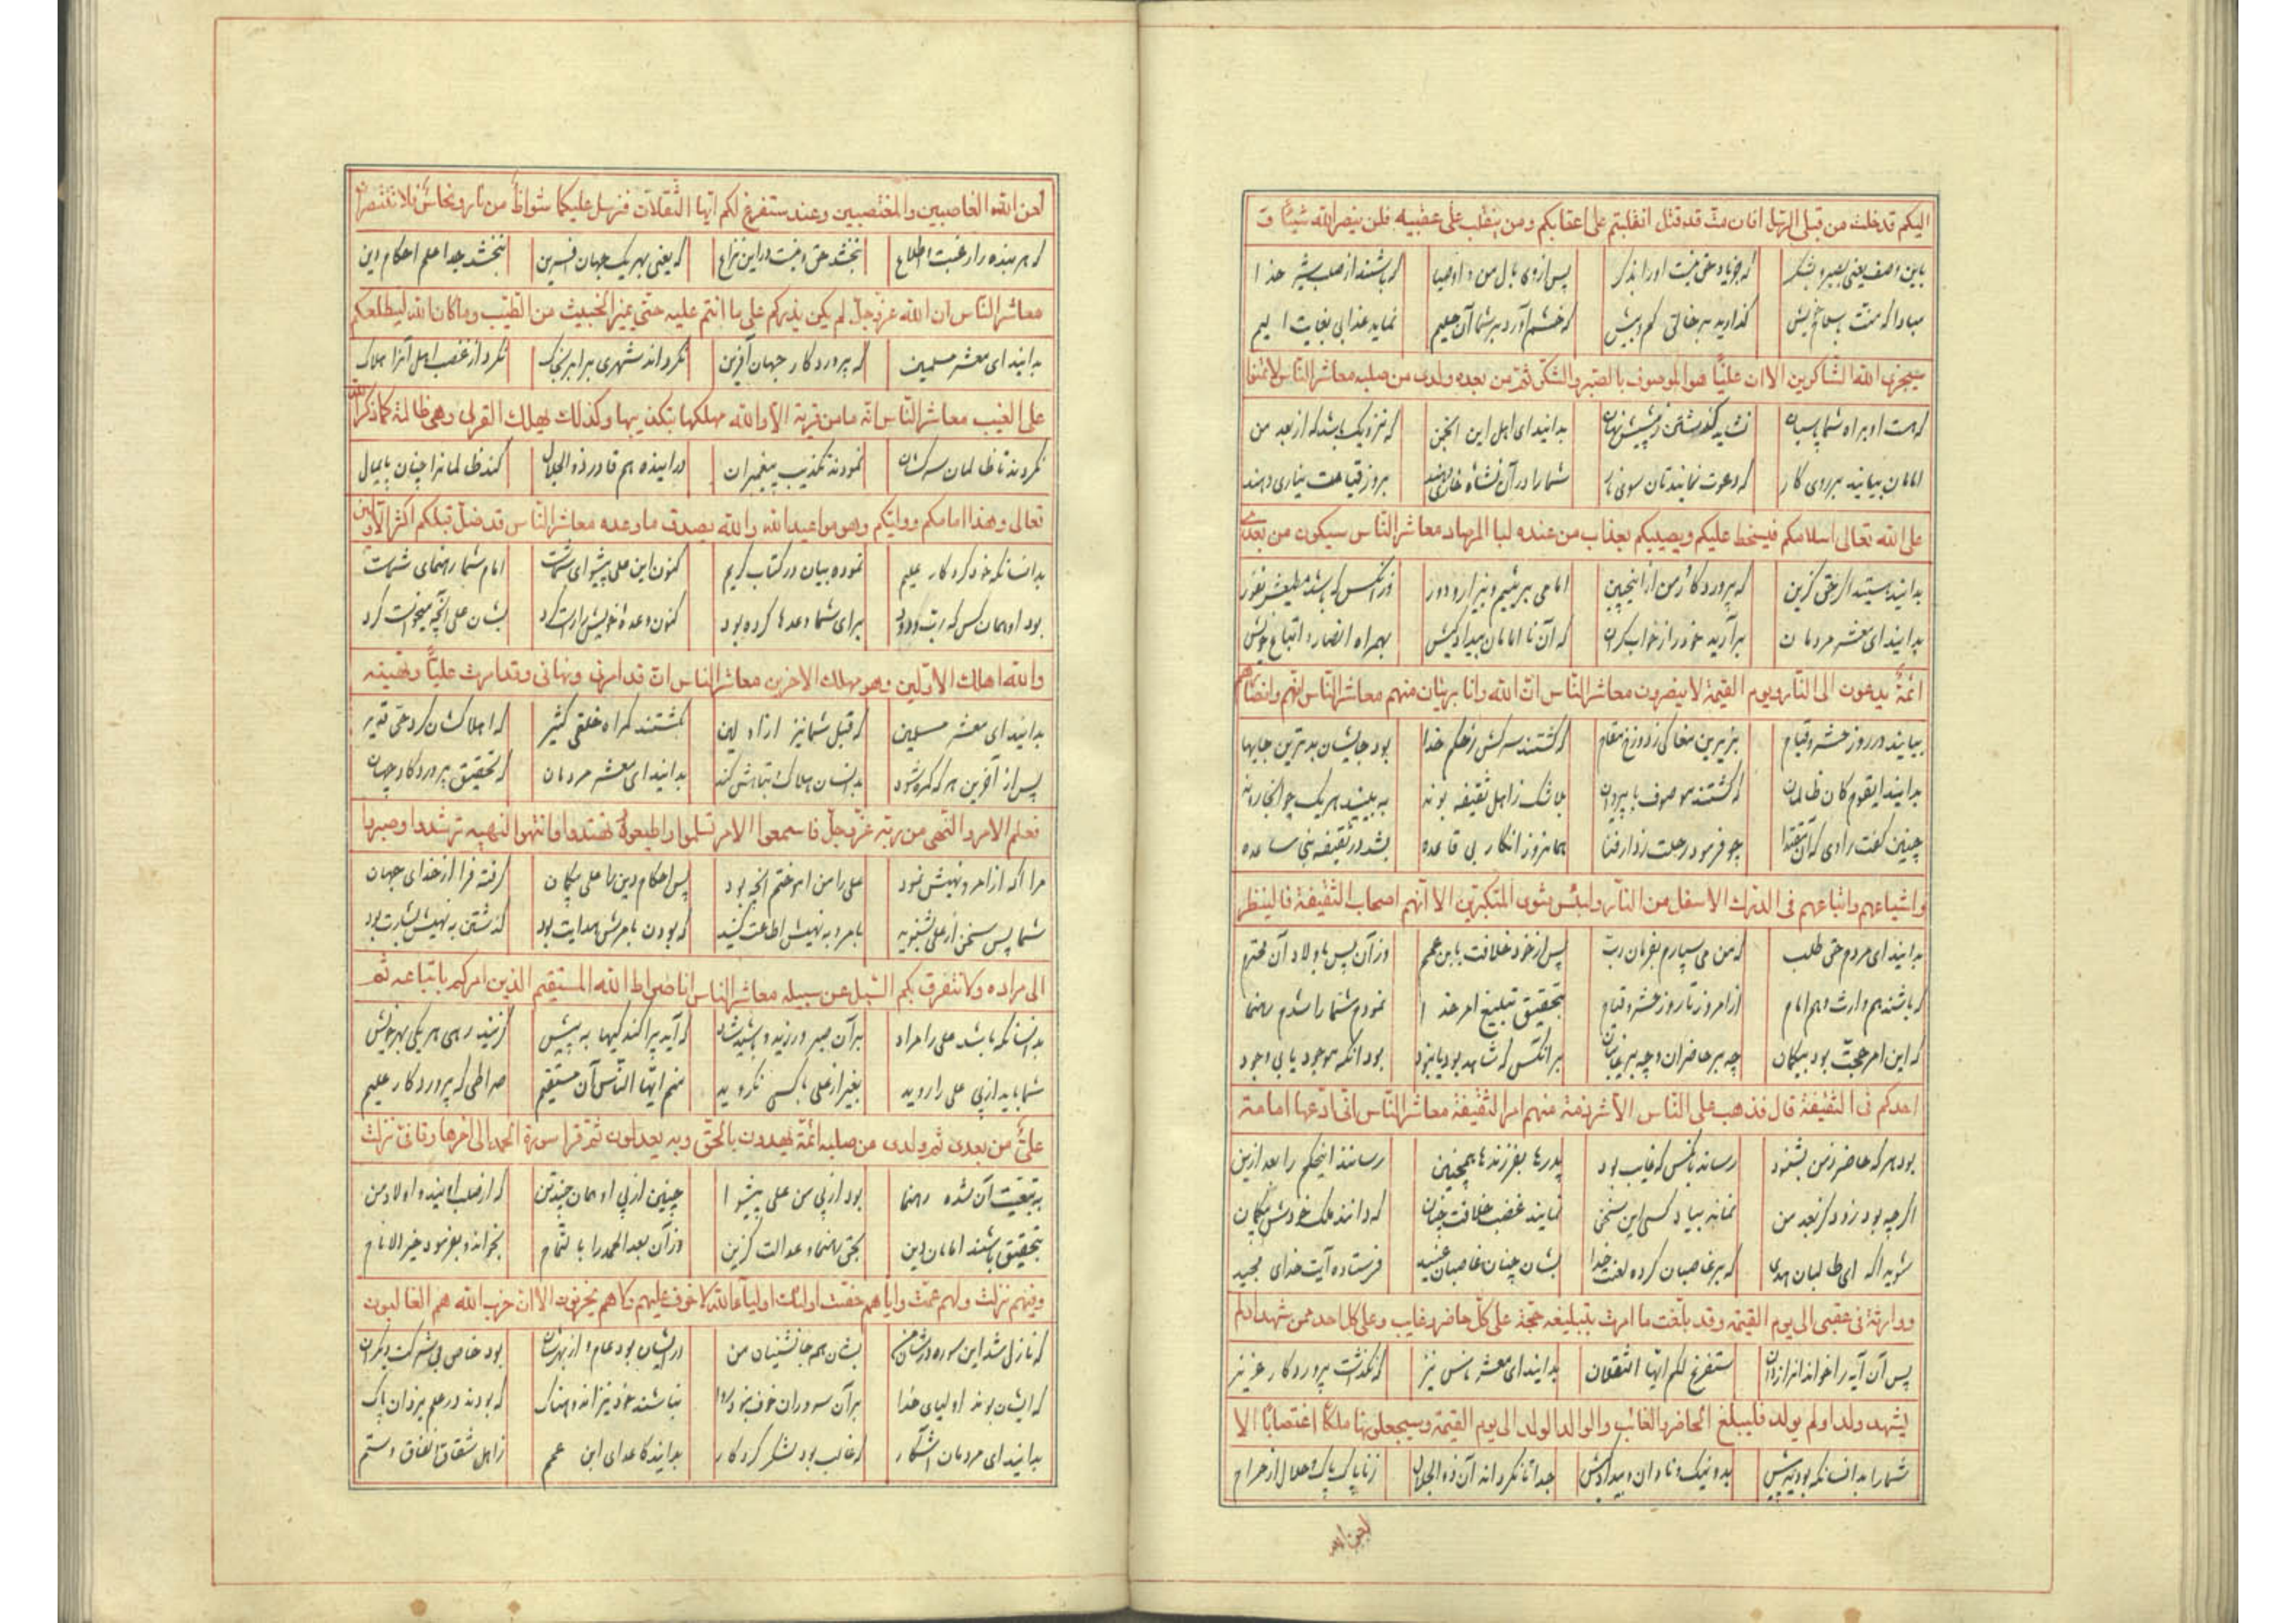 اليكم قد خلت من قبلي الرسل افان مت او قتل انقلبتم على اعقابكم ومن ينقلب على عقبيه فلن يضر الله شيئا و
باین وصف یعنی بصبر و شکر که جویاد حق اورا بذکر پس از وی بال من و اوصیا که باشند از صلب شیر خدا
مبادا که منت کم و بیش که خشم آورد بر شما آن حلیم نماید عذابی بغایت الیم
سيجزى الله الشاكرين الا ان عليا هو الموصوف بالصبر والشكر ثم من بعده ولدى من صلبه معاشر الناس لا تمنوا
که هست او براه شما بدانید ای اهل این انجمن که نزدیک باشد که از بعد من
امامان بیایند بر روی کار که دعوت نمایندتان سوی نار شما را در آن بروز قیامت نه یاری دهند
على الله تعالى اسلامكم فيسخط عليكم ويصيبكم بعذاب من عنده لبا المرصاد معاشر الناس سيكون من بعدى
که پروردگار من از اینچنین امامی بریئیم و بیزار و دور
بدانید ای معشر مردمان برآرید خود را از خواب گران که آن امامان بیدادکیش بهمراه انصار و اتباع خویش
ائمة يدعون الى النار ويوم القيمة لا ينصرون معاشر الناس ان الله وانا بريئان منهم معاشر الناس انهم وانصارهم
بیایند در روز حشر و قیام دوزخ مقام که گشتند سرکش ز حکم خدا بود جایشان بدترین جایها
بدانید ایقوم کان ظالمان که گشتند موصوف بلا شک ز اهل ثقیفه بوند
چنین گفت راوی چو فرمود رحلت ز دار فنا همانروز انکار بی قاعده بشد در ثقیفه بنی ساعده
واشياعهم واتباعهم فى الدرك الاسفل من النار ولبئس مثوى المتكبرين الا انهم اصحاب الثقيفة فالينظر
بدانید ای مردم حق طلب که من می سپارم بفرمان رب پس از خود خلافت بابن عم وز آن پس باولاد آن محترم
که باشند هم وارث و هم امام از امروز تا روز حشر و قیام بتحقیق تبلیغ امر خدا نمودم شما را شدم رهنما
که این امر حجت بود بیگمان چه بر حاضران و چه بر غایبان بر آنکس که شاهد بود یا نبود بود آنکه موجود یا بی وجود
احدكم فى الثقيفة قال فذهب على الناس الا شرذمة منهم امر الثقيفة معاشر الناس انى ادعها امامة
بود هر که حاضر ز من بشنود رساند بآنکس که غایب بود پدرها بفرزندها همچنین رسانند اینحکم را بعد ازین
اگر چه بود زود کز بعد من نماند بیاد کسی این سخن نمایند غصب خلافت چنان که دانند ملک خودش بیگمان
شوید آگه ای طالبان هدی که بر غاصبان کرده لعنت خدا بشان چنان غاصبان عنید فرستاده آیت خدای مجید
ووراثة فى عقبى الى يوم القيمة وقد بلغت ما امرت بتبليغه حجة على كل حاضر وغايب وعلى كل احد ممن شهد اولم
پس آن آیه را خواند سنفرغ لکم ایها الثقلان بدانید ای معشر ناس نیز که نگذاشت پروردگار عزیز
يشهد ولد اولم يولد فليبلغ الحاضر والغائب والوالد الولد الى يوم القيمة وسيجعلونها ملكا اغتصابا الا
شما را بدانسانکه بودید پیش بد و نیک و نادان و بیدادکیش جدا تا نگرداند آن ذوالجلال ز ناپاک پاک و حلال از حرام
لعن الله
لعن الله الغاصبين والمغتصبين وعند سنفرغ لكم ايها الثقلان فنرسل عليكما شواظ من نار ونحاس فلا تنتصران
که هر بنده را رغبت اطلاع ببخشد حق در این نزاع که یعنی بهر یک جهان آفرین ببخشد جدا علم احکام دین
معاشر الناس ان الله عز وجل لم يكن يذركم على ما انتم عليه حتى يميز الخبيث من الطيب وما كان الله ليطلعكم
بدانید ای معشر مسلمین که پروردگار جهان آفرین نکرد اند شهری نکرد از غضب اهل آنرا هلاک
على الغيب معاشر الناس انه ما من قرية الا والله مهلكها بتكذيبها وكذلك يهلك القرى وهى ظالمة كما ذكر الله
نکردند تا ظالمان نمودند تکذیب پیغمبران در اینده هم قادر ذو الجلال کند ظالمانرا چنان پایمال
تعالى وهذا امامكم ووليكم وهو مواعيد الله والله يصدق ما وعده معاشر الناس قد ضل قبلكم اكثر الاولين
بدانسانکه خود کردگار علیم نموده بیان در کتاب کریم کنون این علی پیشوای شماست امام شما رهنمای شماست
بود او همان کس که رب ودود برای شما وعدها کرده بود کنون وعدهٔ خویش را راست کرد بشان علی آنچه میخواست کرد
والله اهلك الاولين وهو مهلك الاخرين معاشر الناس ان الله قد امرنى ونهانى وقد امرت عليا ونهيته
بدانید ای معشر مسلمین که قبل شما نیز از اولین بگشتند گمراه خلقی کثیر که اهلاکشان کرد حی قدیر
پس از آفرین هر که گمره شود بدانسان هلاک و تباهش کند بدانید ای معشر مردمان که تحقیق پروردگار جهان
فعلم الامر والنهى من ربه عز وجل فاسمعوا الامر تسلموا واطيعوه تهتدوا وانتهوا لنهيه ترشدوا وصيروا
مرا آگه از امر و نهیش نمود علی را من آموختم آنچه بود پس احکام دین را علی بیگمان گرفته فرا از خدای جهان
شما پس سخن از علی بشنوید بامر و به نهیش اطاعت کنید که بودن بامرش هدایت بود گذشتن به نهیش بشارت بود
الى مراده ولا تتفرق بكم السبل عن سبيله معاشر الناس انا صراط الله المستقيم الذين امركم باتباعه ثم
بدانسانکه باشد علی را مراد بر آن صبر ورزید که آید پراکندگیها به پیش گزینید رهی هر یکی بهر خویش
شما باید از پی علی را روید بغیر از علی با کسی نگروید منم ایها الناس آن مستقیم صراطی که پروردگار علیم
على من بعدى ثم ولدى من صلبه ائمة يهدون بالحق وبه يعدلون ثم قرا سورة الحمد الى اخرها وقال فى نزلت
به تبعیت آن شده رهنما بود از پی من علی پیشوا چنین از پی او همان چندتن که از صلب اویند و اولاد من
بتحقیق باشند امامان دین بحق رهنما و عدالت گزین وز آن بعد الحمد را بالتمام بخواند و بفرمود خیر الانام
وفيهم نزلت ولهم عمت واياهم خصت اولئك اولياء الله لا خوف عليهم ولا هم يحزنون الا ان حزب الله هم الغالبون
که نازل شد این سوره در شأن من بشأن هم جانشینان من در ایشان بود عام و از بهرشان بود خاص بی شرکت دیگران
که ایشان بوند اولیای خدا بر آن سروران خوف نبود روا نباشند خود نیز اندوهناک که بودند در علم یزدان پاک
بدانید ای مردمان آشکار که غالب بود لشکر کردگار بدانید کاعدای ابن عمم ز اهل شقاق و نفاق و ستم